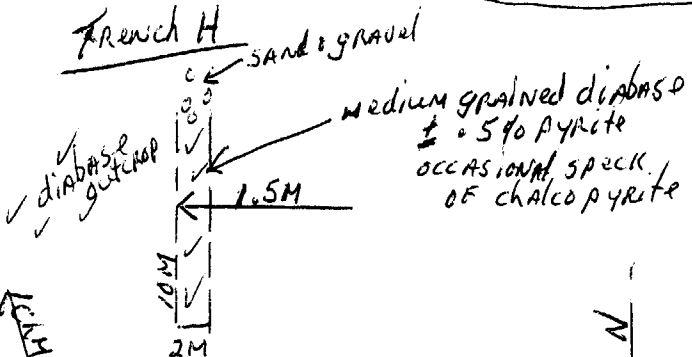 French H
SAND & GRAVEL
medium grained diabase
± .5% pyrite
OCCASIONAL SPECK
OF chalcopyrite
diabase
outcrop
1.5M
10M
2M
N